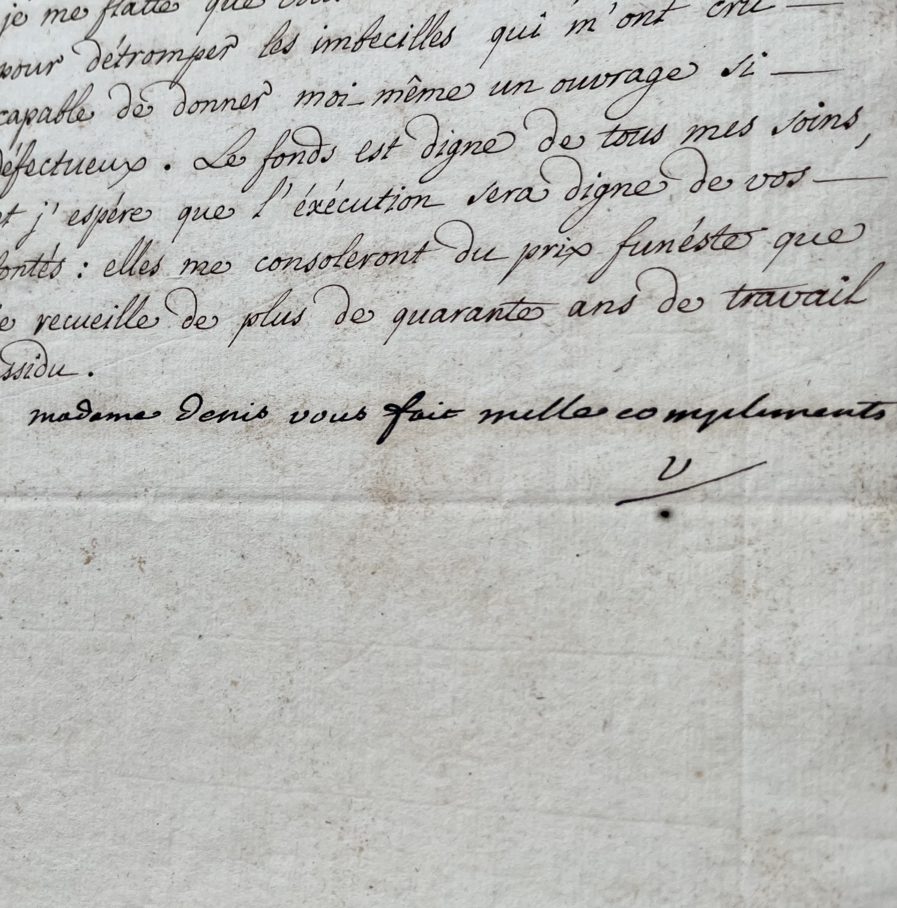 je me flatte que
pour détromper les imbecilles qui m'ont cru —
capable de donner moi-même un ouvrage si —
défectueux. Le fonds est digne de tous mes soins,
et j'espére que l'éxécution sera digne de vos —
bontés : elles me consoleront du prix funéste que
je recueille de plus de quarante ans de travail
assidu.
madame denis vous fait mille compliments
V